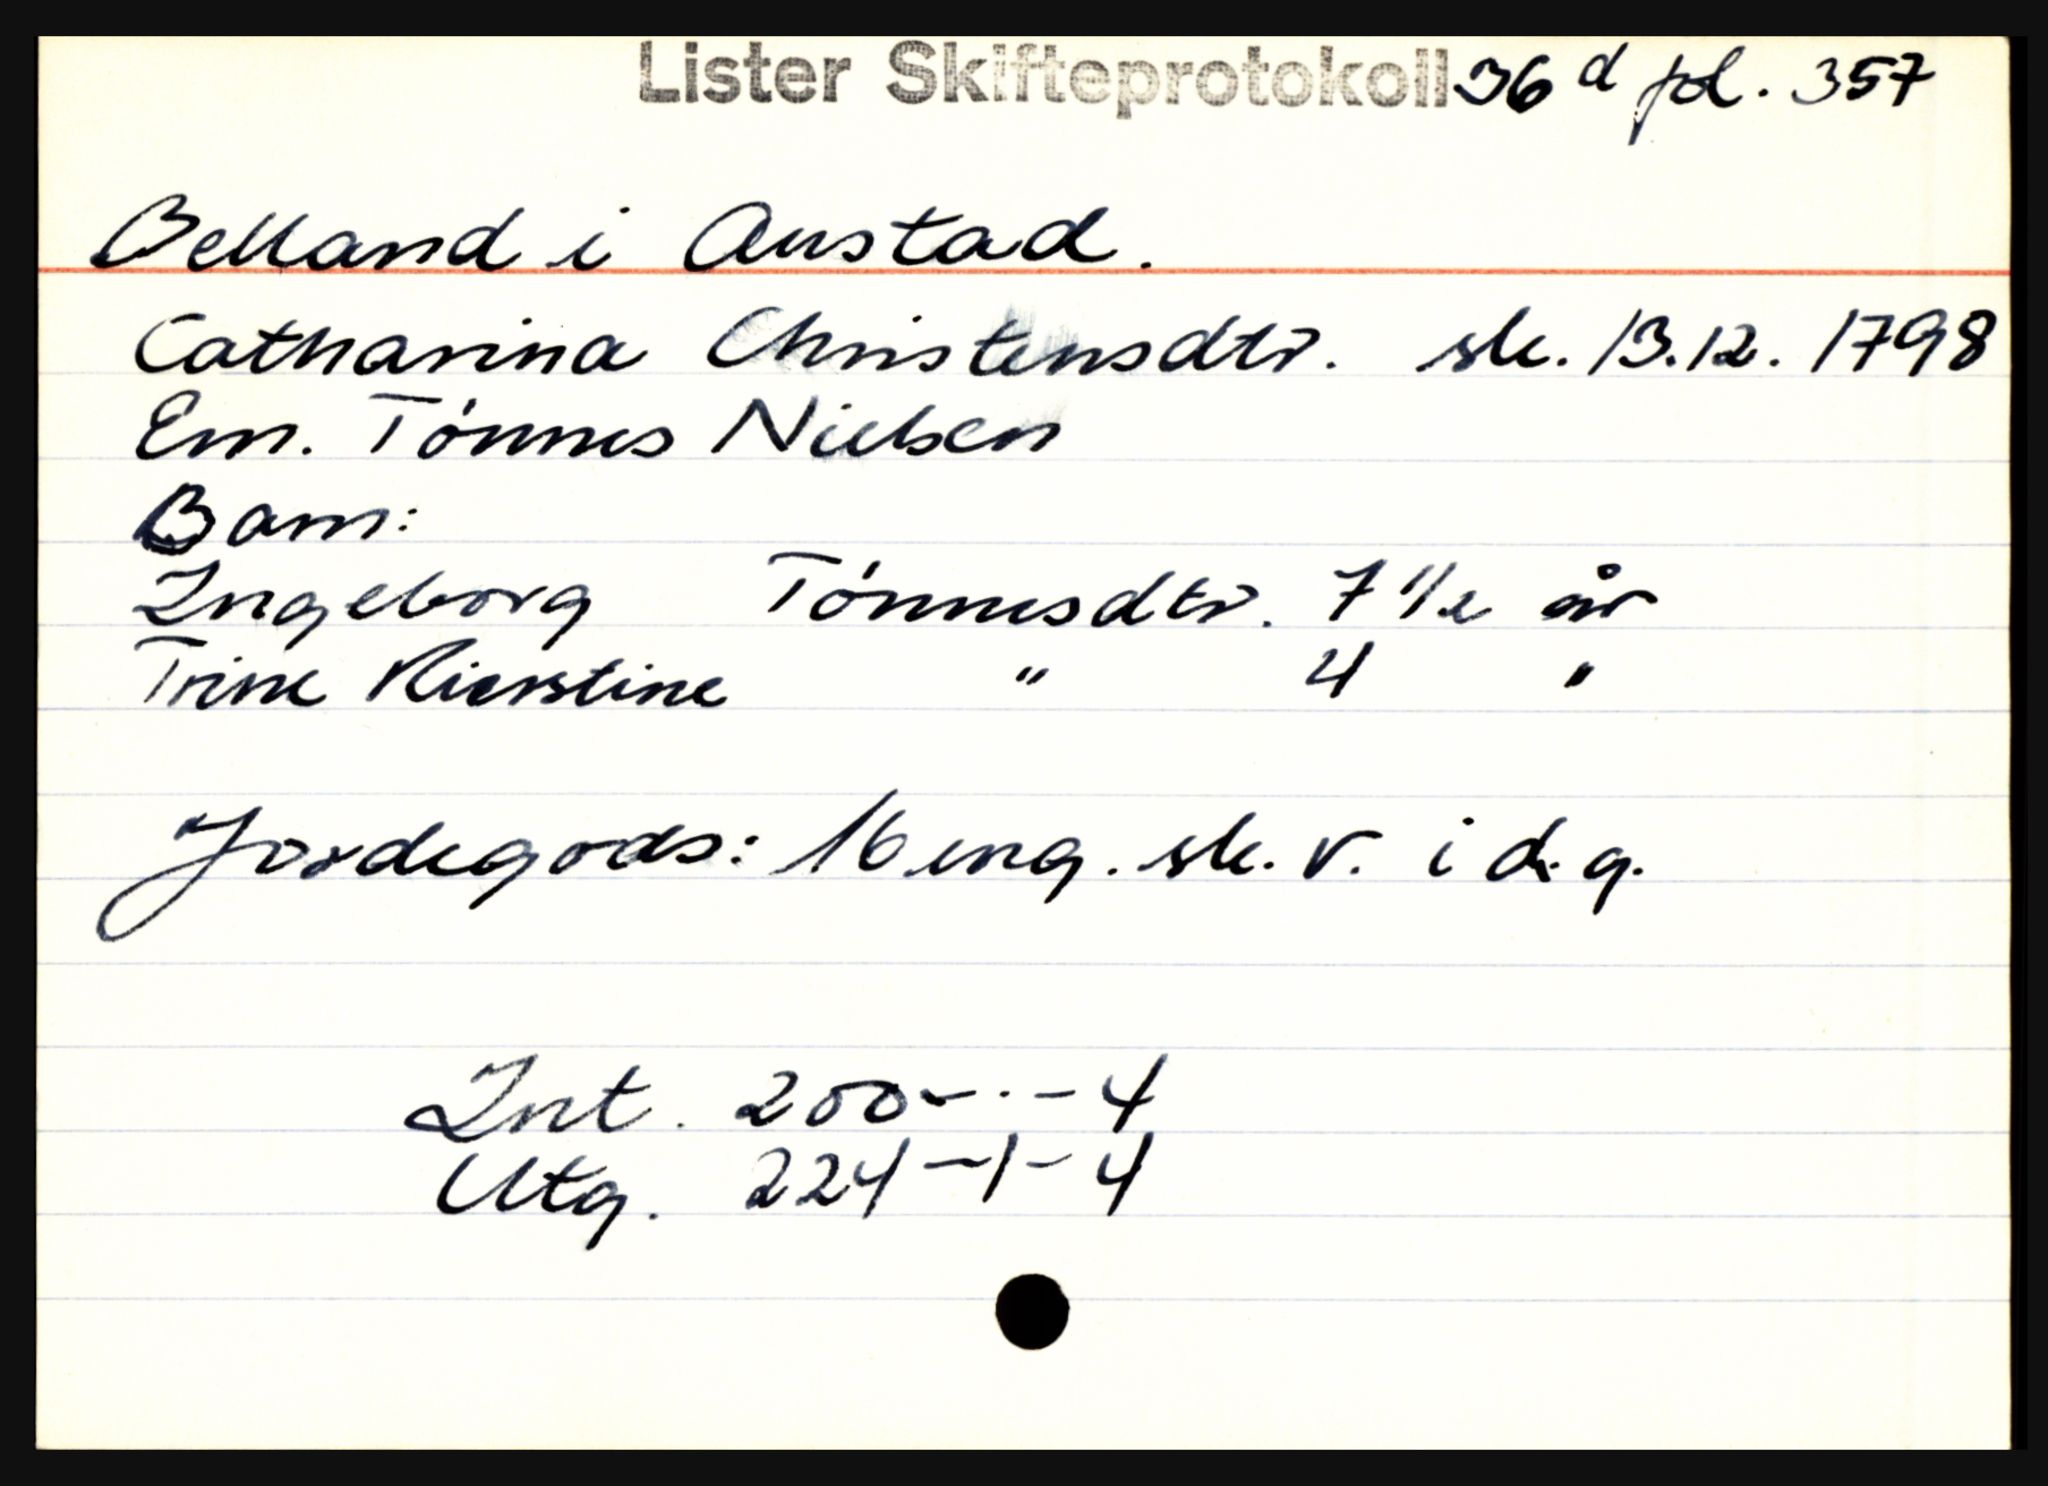 Lister Skifteprotokoll 36 d fol. 357
Belland i Austad.
Catharina Christensdtr. sk. 13.12. 1798
Em. Tónnes Nielsen
Barn:
Ingeborg Tónnesdtr. 7 1/2 år
Trine Kierstine " 4 "
Jordegods: 16 eng. sk. v. i d. g.
Int. 200-·-4
Utg. 224-1-4